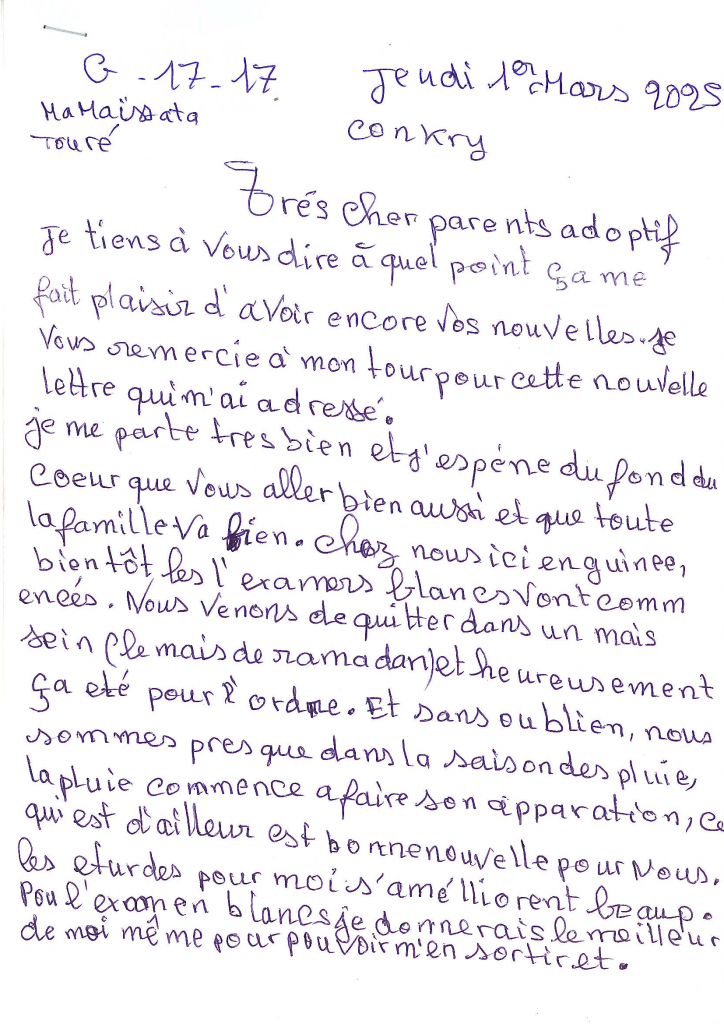 G - 17 - 17
Jeudi 1er Mars 2025
MaMaïssata
Touré
Conkry
Trés cher parents adoptif
Je tiens à vous dire à quel point ça me
fait plaisir d'avoir encore vos nouvelles. je
vous remercie à mon tour pour cette nouvelle
lettre qui m'ai adressé.
je me parte tres bien et j'espére du fond du
coeur que vous aller bien aussi et que toute
la famille va bien. chez nous ici en guinee,
bientôt les l'examers blancs vont comm
enceés. Nous venons de quitter dans un mais
sein (le mais de ramadan) et heureusement
ça eté pour l'ordre. Et sans oublien, nous
sommes presque dans la saison des pluie,
la pluie commence a faire son apparation, ce
qui est d'ailleur est bonne nouvelle pour nous.
les eturdes pour moi s'amélliorent beaup.
Pou l'examen blancs je donnerais le meilleur
de moi même pour pouvoir m'en sortir et.